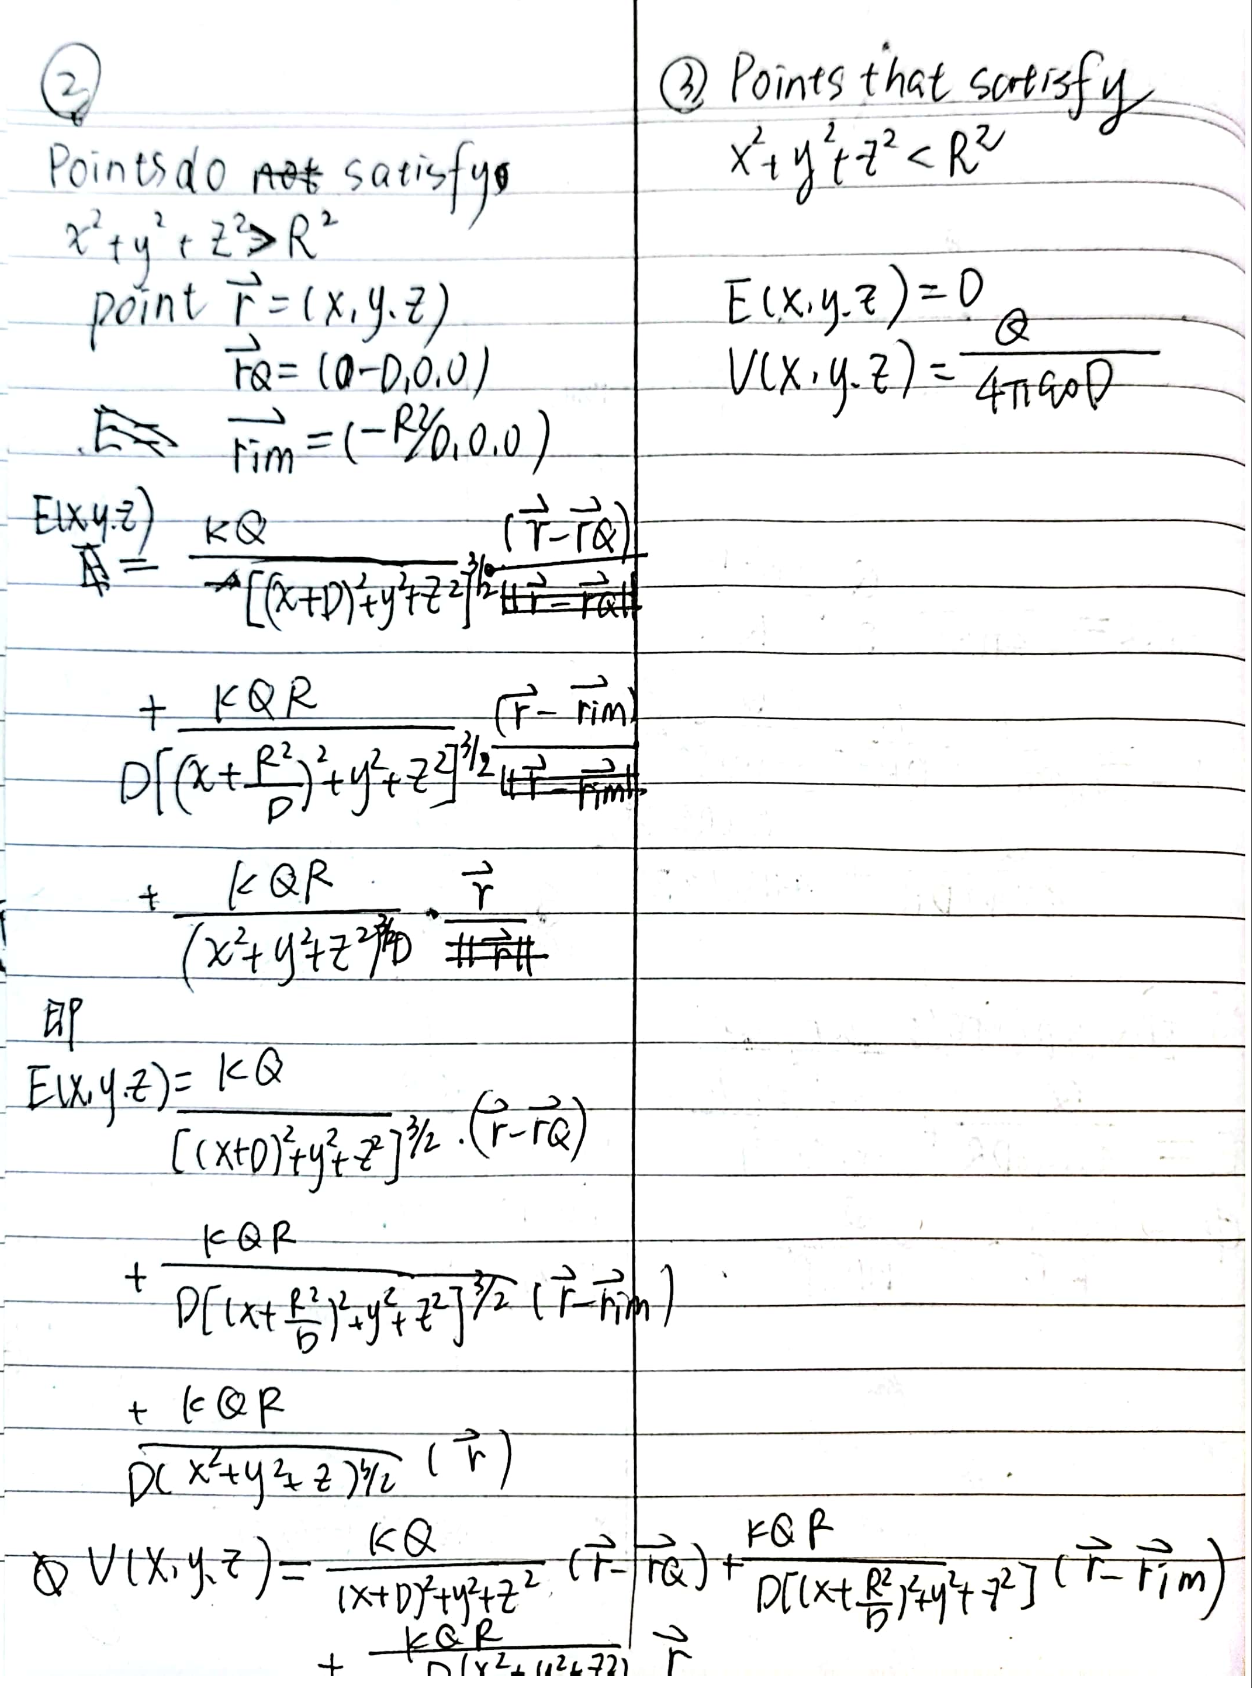 ②
Points do satisfy
x²+y²+z²>R²
point r⃗=(x,y.z)
r⃗Q=(-D,0,0)
r⃗im=(-R²/D,0,0)
E(x,y.z)
= KQ / [(x+D)²+y²+z²]^3/2 · (r⃗-r⃗Q)
+ KQR / D[(x+R²/D)²+y²+z²]^3/2 (r⃗-r⃗im)
+ KQR / (x²+y²+z²)^3/2 D · r⃗
即
E(x,y.z)= KQ / [(x+D)²+y²+z²]^3/2 ·(r⃗-r⃗Q)
+ KQR / D[(x+R²/D)²+y²+z²]^3/2 (r⃗-r⃗im)
+ KQR / D(x²+y²+z)^3/2 (r⃗)
V(x,y,z)= KQ / (x+D)²+y²+z² (r⃗-r⃗Q)+ KQR / D[(x+R²/D)²+y²+z²] (r⃗-r⃗im)
+ KQR / D(x²+y²+z²) r⃗
③ Points that satisfy
x²+y²+z²<R²
E(x,y.z)=0
V(x,y.z)= Q / 4πε0D